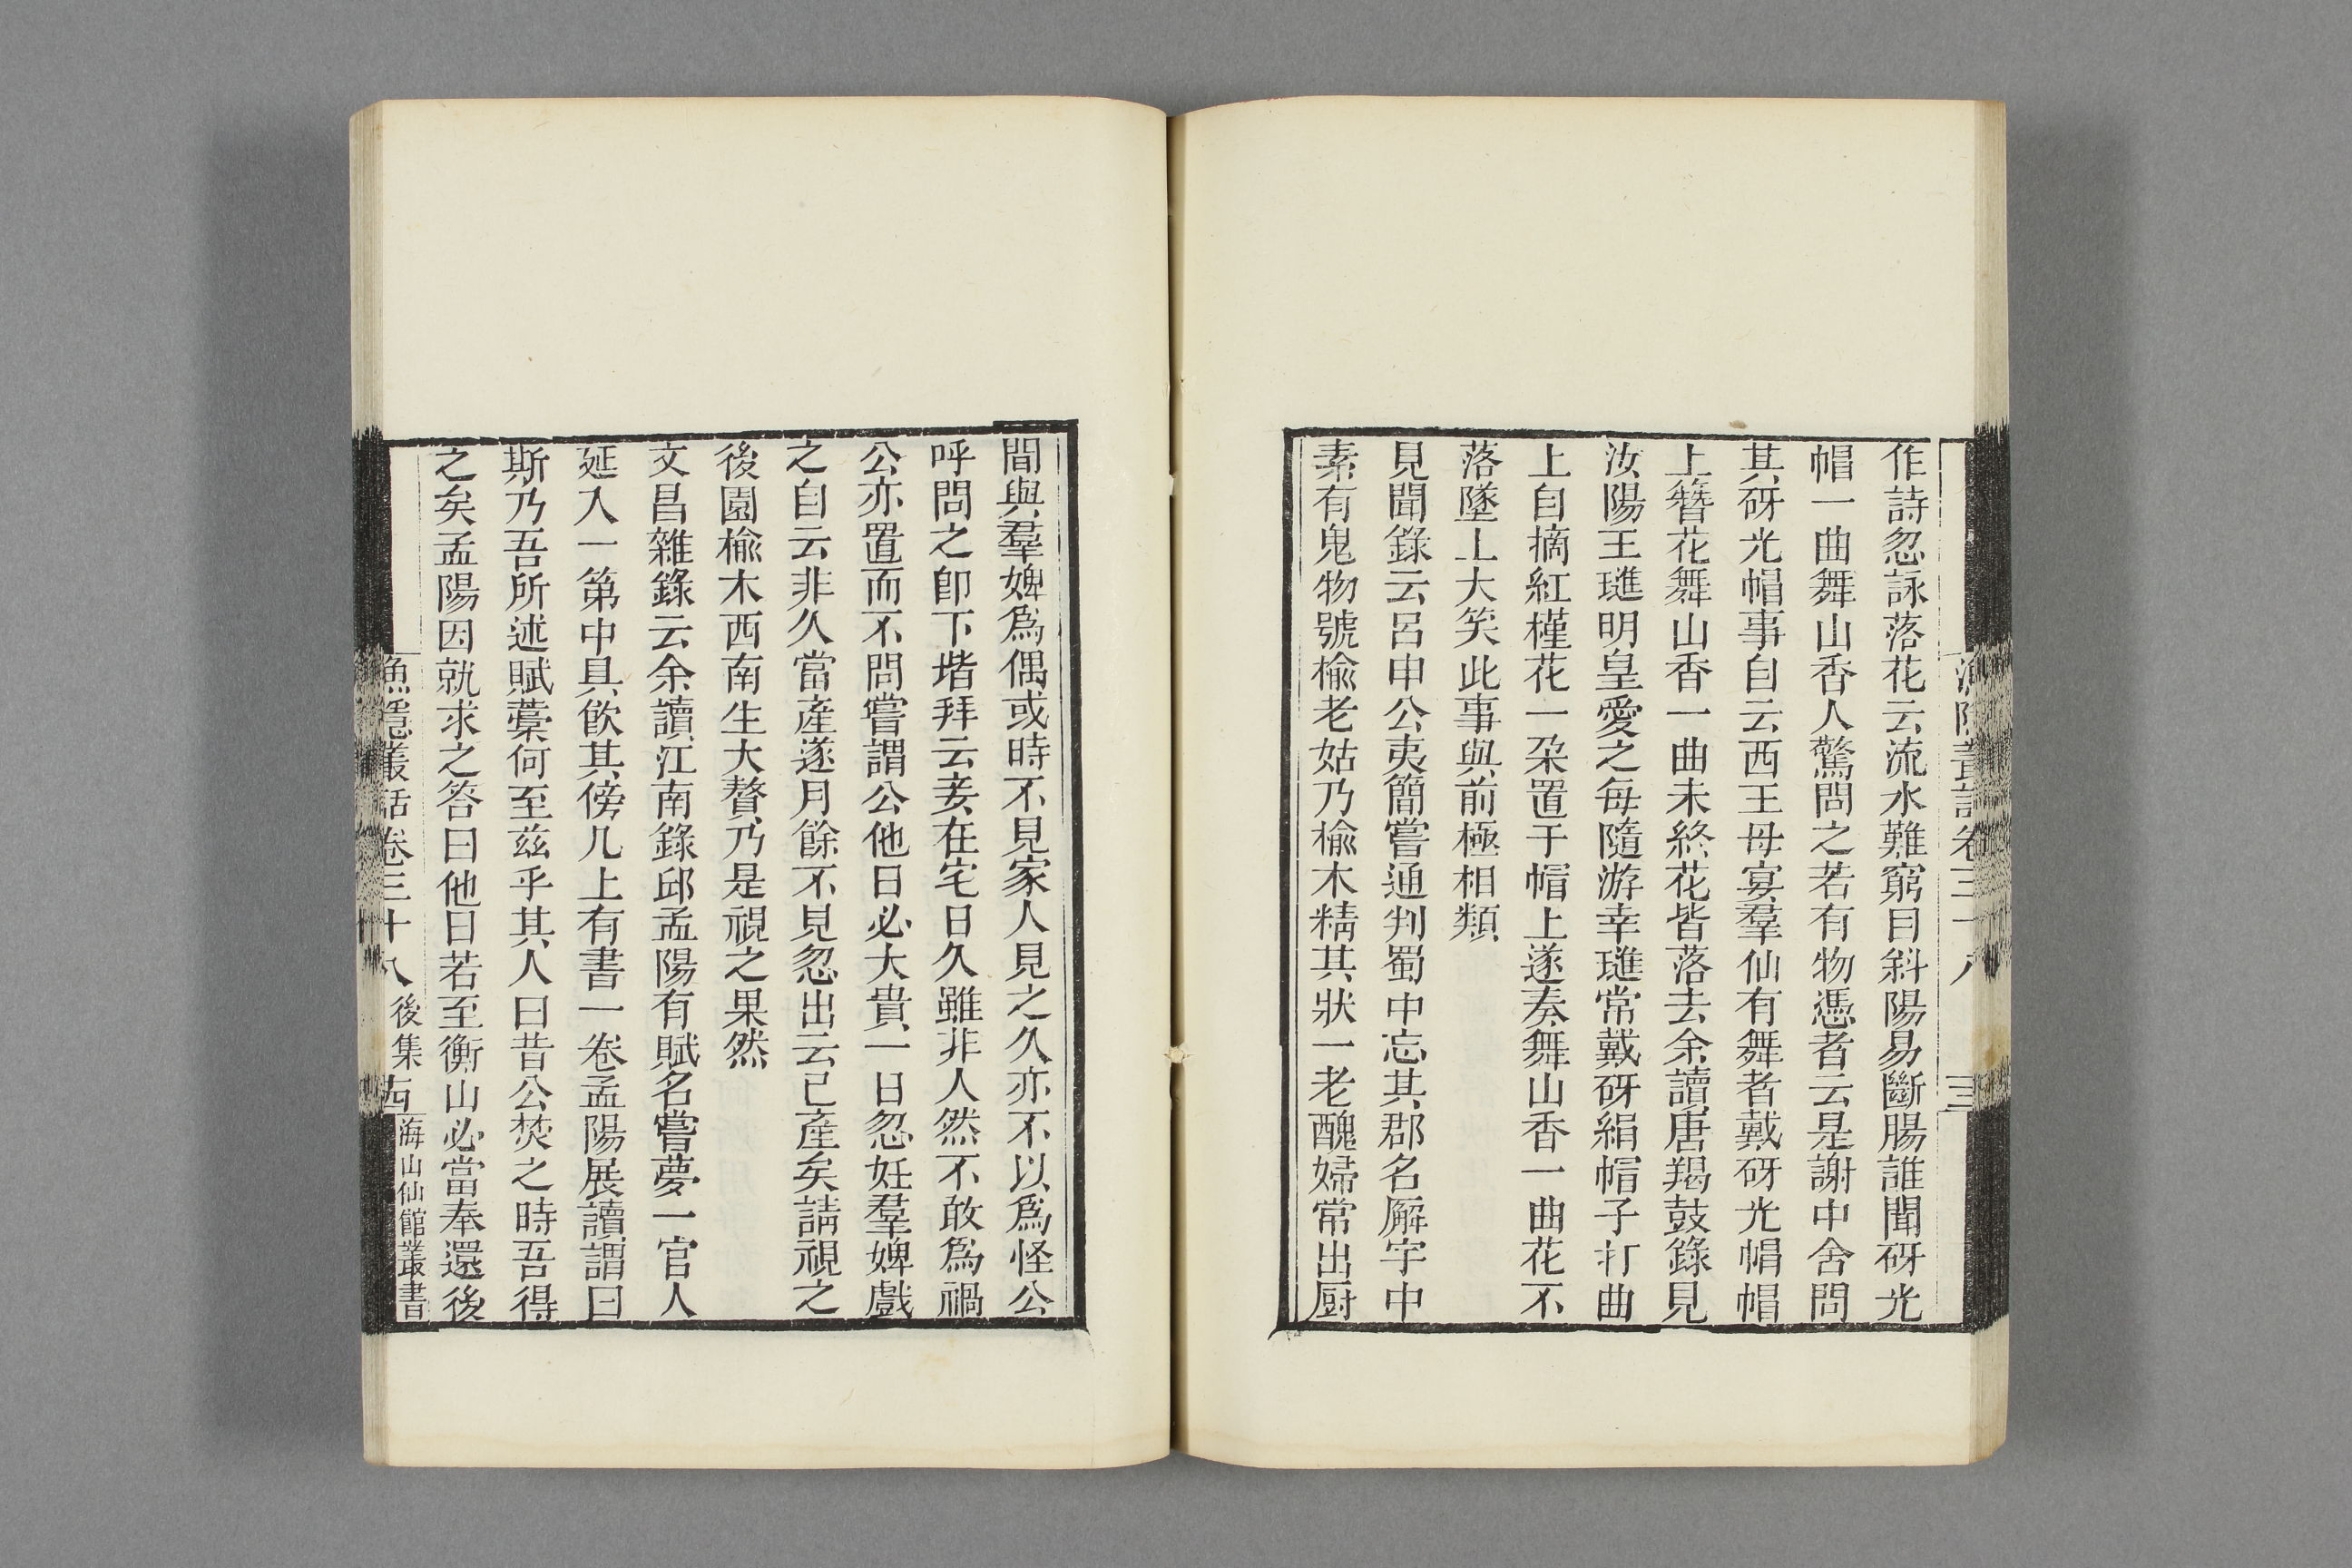 作詩忽詠落花云流水難窮目斜陽易斷腸誰聞砑光
帽一曲舞山香人驚問之若有物憑者云是謝中舍問
其砑光帽事自云西王母宴羣仙有舞者戴砑光帽帽
上簪花舞山香一曲未終花皆落去余讀唐羯鼓錄見
汝陽王璡明皇愛之每隨游幸璡常戴砑絹帽子打曲
上自摘紅槿花一朶置于帽上遂奏舞山香一曲花不
落墜上大笑此事與前極相類
見聞錄云呂申公夷簡嘗通判蜀中忘其郡名廨宇中
素有鬼物號榆老姑乃榆木精其狀一老醜婦常出厨
間與羣婢爲偶或時不見家人見之久亦不以爲怪公
呼問之卽下堦拜云妾在宅日久雖非人然不敢爲禍
公亦置而不問嘗謂公他日必大貴一日忽妊羣婢戲
之自云非久當產遂月餘不見忽出云已產矣請視之
後園榆木西南生大贅乃是視之果然
文昌雜錄云余讀江南錄邱孟陽有賦名嘗夢一官人
延入一第中具飲其傍几上有書一卷孟陽展讀謂曰
斯乃吾所述賦藁何至茲乎其人曰昔公焚之時吾得
之矣孟陽因就求之答曰他日若至衡山必當奉還後
漁隱叢話卷三十八 後集 海山仙館叢書